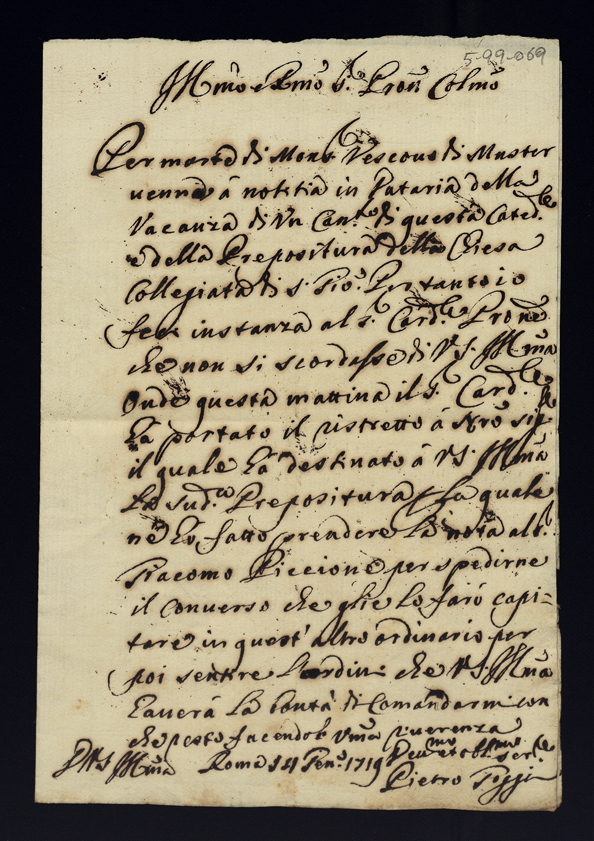 5-99-069
Illmo e Rmo Sr. Pron Colmo
Per morte di Monsr Vescouo di Muster
uenne á notitia in Dataria della
Vacanza di Vn Canto di questa Catedle
e della Prepositura della Chiesa
Collegiata di S. Gio: Per tanto io
feci instanza al Sr. Cardle Prone
che non si scordasse di VS. Illma
Onde questa mattina il Sr. Cardle
há portato il ristretto á Nro Sigr
il quale há destinato á VS. Illma
la sudta Prepositura, la quale
ne hó fatto prendere la nota al S.
Giacomo Piccione per spedirne
il conuerso che glie lo faró capi=
tare in quest' altro ordinario per
poi sentire l'ordini che VS. Illma
hauerá la bontá di Comandarmi con
che resto facendole Vma riuerenza
D VS Illma Roma 14 Gen: 1719 Deumo et oblmo serle
Pietro